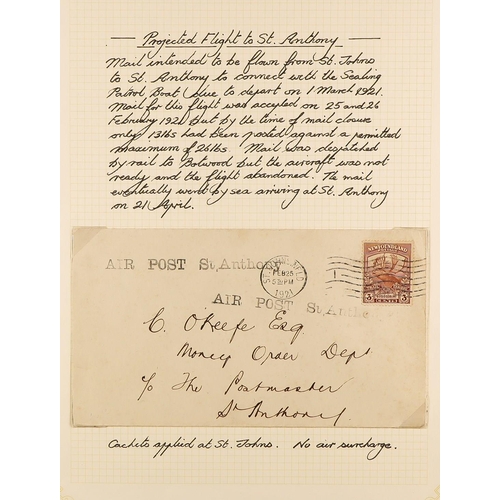 Projected Flight to St. Anthony
Mail intended to be flown from St. Johns
to St. Anthony to connect with the Sealing
Patrol Boat due to depart on 1 March 1921.
Mail for this flight was accepted on 25 and 26
February 1921 but by the time of mail closure
only 13lbs had been posted against a permitted
maximum of 26lbs. Mail was despatched
by rail to Botwood but the aircraft was not
ready and the flight abandoned. The mail
eventually went by sea arriving at St. Anthony
on 21 April.
AIR POST St. Anthony
FEB 25
PM
1921
NEWFOUNDLAND
3 3
CENTS
AIR POST St. Antho
C. O'Keefe Esq.
Money Order Dept
c/o The Postmaster
St Anthony
Cachets applied at St. Johns. No air surcharge.